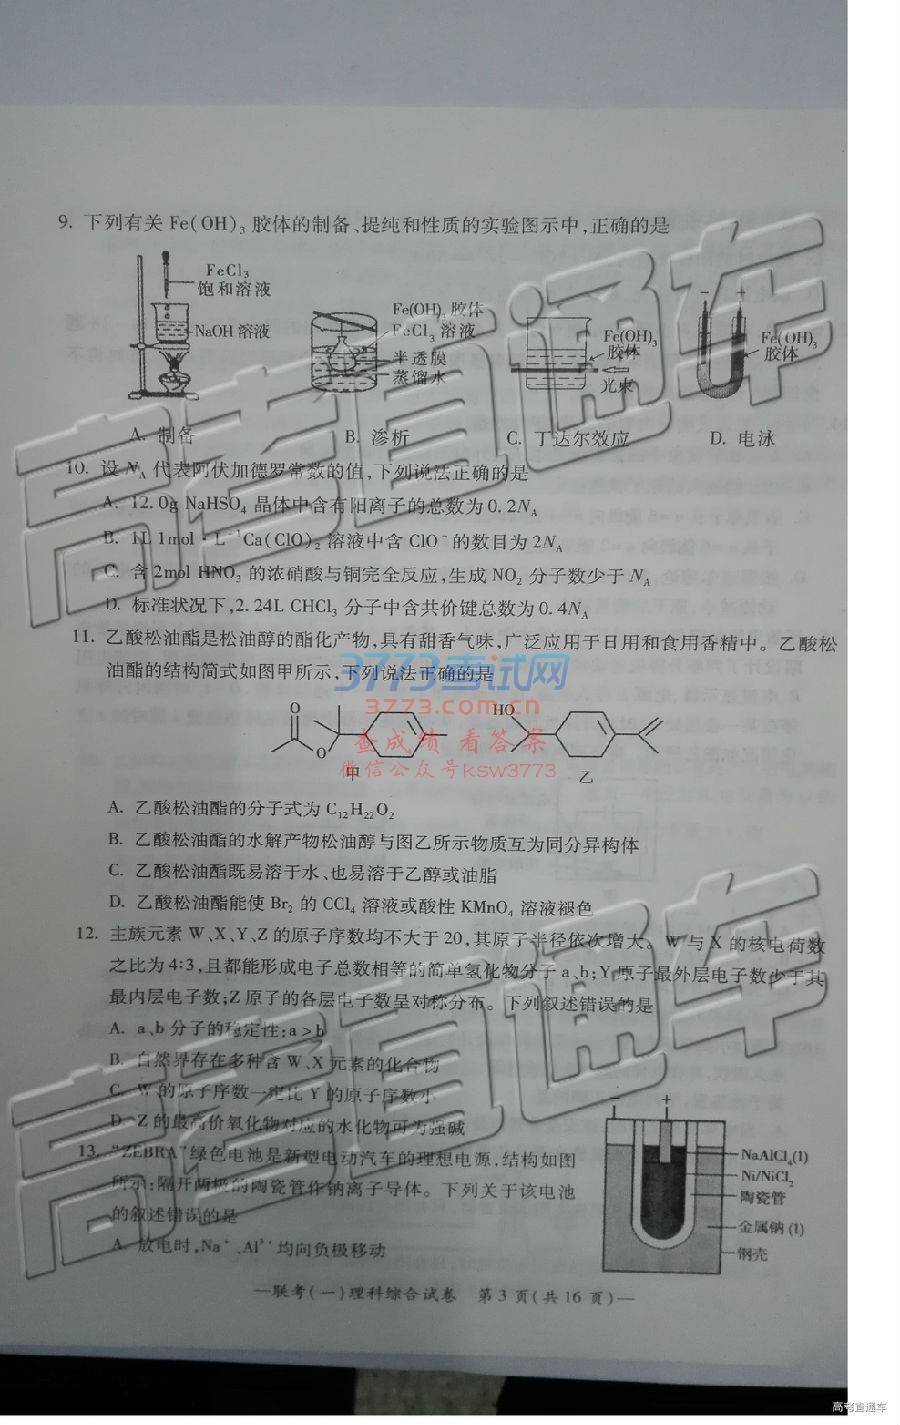 9. 下列有关 Fe(OH)₃ 胶体的制备、提纯和性质的实验图示中,正确的是
FeCl₃
饱和溶液
NaOH 溶液
Fe(OH)₃ 胶体
FeCl₃ 溶液
半透膜
蒸馏水
Fe(OH)₃
胶体
光束
- +
Fe(OH)₃
胶体
A. 制备 B. 渗析 C. 丁达尔效应 D. 电泳
10. 设 N_A 代表阿伏加德罗常数的值,下列说法正确的是
A. 12.0g NaHSO₄ 晶体中含有阳离子的总数为 0.2N_A
B. 1L 1mol·L⁻¹Ca(ClO)₂ 溶液中含 ClO⁻ 的数目为 2N_A
C. 含 2mol HNO₃ 的浓硝酸与铜完全反应,生成 NO₂ 分子数少于 N_A
D. 标准状况下,2.24L CHCl₃ 分子中含共价键总数为 0.4N_A
11. 乙酸松油酯是松油醇的酯化产物,具有甜香气味,广泛应用于日用和食用香精中。乙酸松
油酯的结构简式如图甲所示,下列说法正确的是
3773考试网
3773.com.cn
查成绩 看答案
微信公众号ksw3773
O
O
甲
HO
乙
A. 乙酸松油酯的分子式为 C₁₂H₂₂O₂
B. 乙酸松油酯的水解产物松油醇与图乙所示物质互为同分异构体
C. 乙酸松油酯既易溶于水、也易溶于乙醇或油脂
D. 乙酸松油酯能使 Br₂ 的 CCl₄ 溶液或酸性 KMnO₄ 溶液褪色
12. 主族元素 W、X、Y、Z 的原子序数均不大于 20,其原子半径依次增大。W 与 X 的核电荷数
之比为 4:3,且都能形成电子总数相等的简单氢化物分子 a、b;Y 原子最外层电子数少于其
最内层电子数;Z 原子的各层电子数呈对称分布。下列叙述错误的是
A. a、b 分子的稳定性:a>b
B. 自然界存在多种含 W、X 元素的化合物
C. W 的原子序数一定比 Y 的原子序数小
D. Z 的最高价氧化物对应的水化物可为强碱
13. “ZEBRA”绿色电池是新型电动汽车的理想电源,结构如图
所示:隔开两极的陶瓷管作钠离子导体。下列关于该电池
的叙述错误的是
A. 放电时,Na⁺、Al³⁺均向负极移动
- +
NaAlCl₄(l)
Ni/NiCl₂
陶瓷管
金属钠(l)
钢壳
—联考(一)理科综合试卷 第 3 页(共 16 页)—
高考直通车
高考直通车
高考直通车